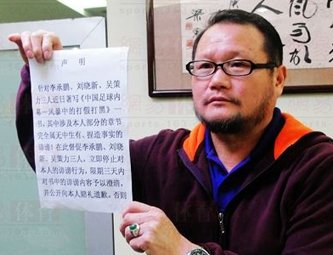 声 明
针对李承鹏、刘晓新、吴策
力三人近日著写《中国足球内
幕—风暴中的打假打黑》一
书,其中涉及本人部分的章节
完全属无中生有、捏造事实的
诽谤!在此督促李承鹏、刘晓
新、吴策力三人,立即停止对
本人的诽谤行为,限期三天内
对书中的诽谤内容予以澄清,
并公开向本人赔礼道歉,否则